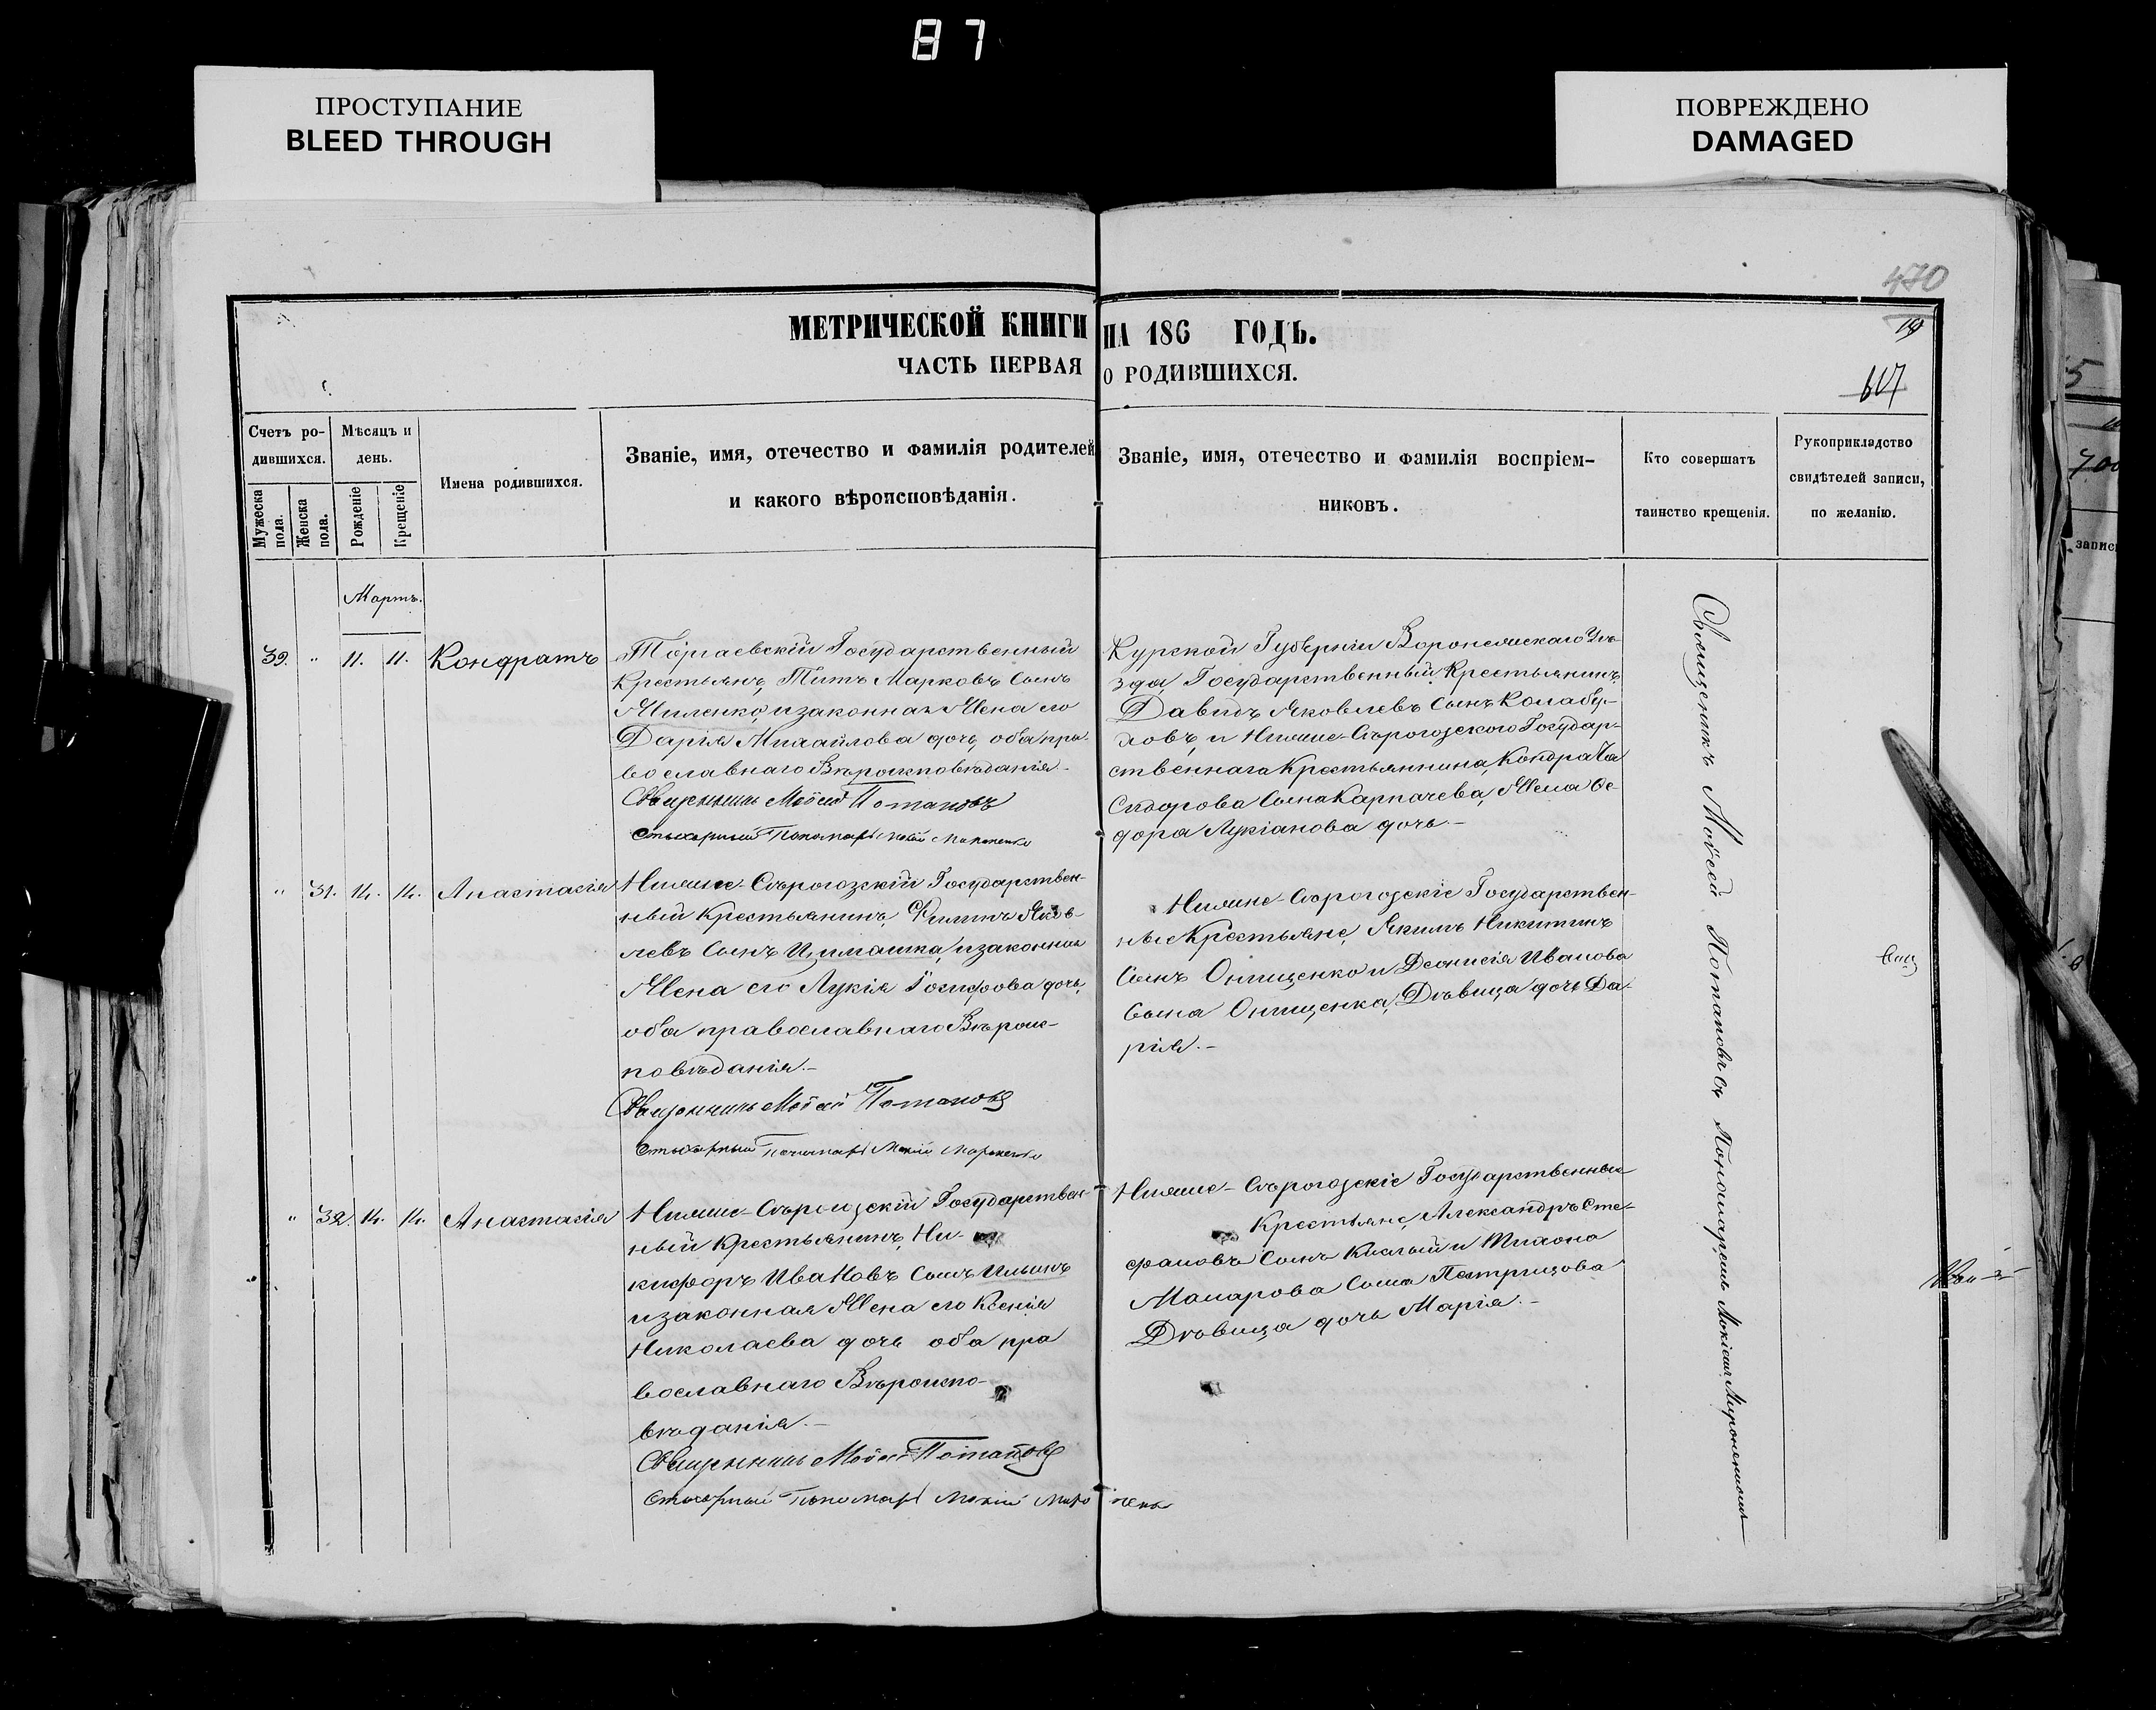 87
ПРОСТУПАНИЕ
BLEED THROUGH
ПОВРЕЖДЕНО
DAMAGED
470
19
617
МЕТРИЧЕСКОЙ КНИГИ НА 186 ГОДЪ.
ЧАСТЬ ПЕРВАЯ О РОДИВШИХСЯ.
Счетъ ро-
дившихся.
Мужеска
пола.
Женска
пола.
Мѣсяцъ и
день.
Рожденіе
Крещеніе
Имена родившихся.
Званіе, имя, отечество и фамилія родителей
и какого вѣроисповѣданія.
Званіе, имя, отечество и фамилія воспріем-
никовъ.
Кто совершатъ
таинство крещенія.
Рукоприкладство
свидѣтелей записи,
по желанію.
Мартъ.
39. " 11. 11. Кондратъ
Государственный
Крестьянъ, Титъ Марковъ Сынъ
и законная Жена его
Дарія Михайлова дочь, оба пра-
вославнаго Вѣроисповѣданія.-
Священникъ Мойсей Потаповъ
Стихарный Пономарь Мокій
Курской Губерніи Уѣ-
зда, Государственный Крестьянинъ,
Давидъ Яковлевъ Сынъ
и Нижне-Сѣрогозского Государ-
ственнаго Крестьянина, Кондрата
Сидорова Сына Карпачева, Жена Ѳе-
дора Лукіанова дочь.-
" 31. 14. 14. Анастасія
Нижне-Сѣрогозскій Государствен-
ный Крестьянинъ, Филипъ Яков-
левъ Сынъ Цимашка, и законная
Жена его Лукія Іосифова дочь,
оба православнаго Вѣроис-
повѣданія.-
Священникъ Мойсей Потаповъ
Стихарный Пономарь Мокій
Нижне-Сѣрогозскіе Государствен-
ные Крестьяне, Якимъ Никитинъ
Сынъ Онищенко и Деонисія Иванова
Сына Онищенка, Дѣвица дочь Да-
рія.-
" 32. 14. 14. Анастасія
Нижне-Сѣрогозскій Государствен-
ный Крестьянинъ, Ни-
кифоръ Ивановъ Сынъ Ильинъ
и законная Жена его Ксенія
Николаева дочь оба пра
вославнаго Вѣроиспо-
вѣданія.-
Священникъ Мойсей Потаповъ
Стихарный Пономарь Мокій
Нижне-Сѣрогозскіе Государственные
Крестьяне, Александръ Сте-
фановъ Сынъ и Тихона
Макарова Сына
Дѣвица дочь Марія.-
Священникъ Мойсей Потаповъ съ Пономаремъ Мокіемъ Мироненкомъ